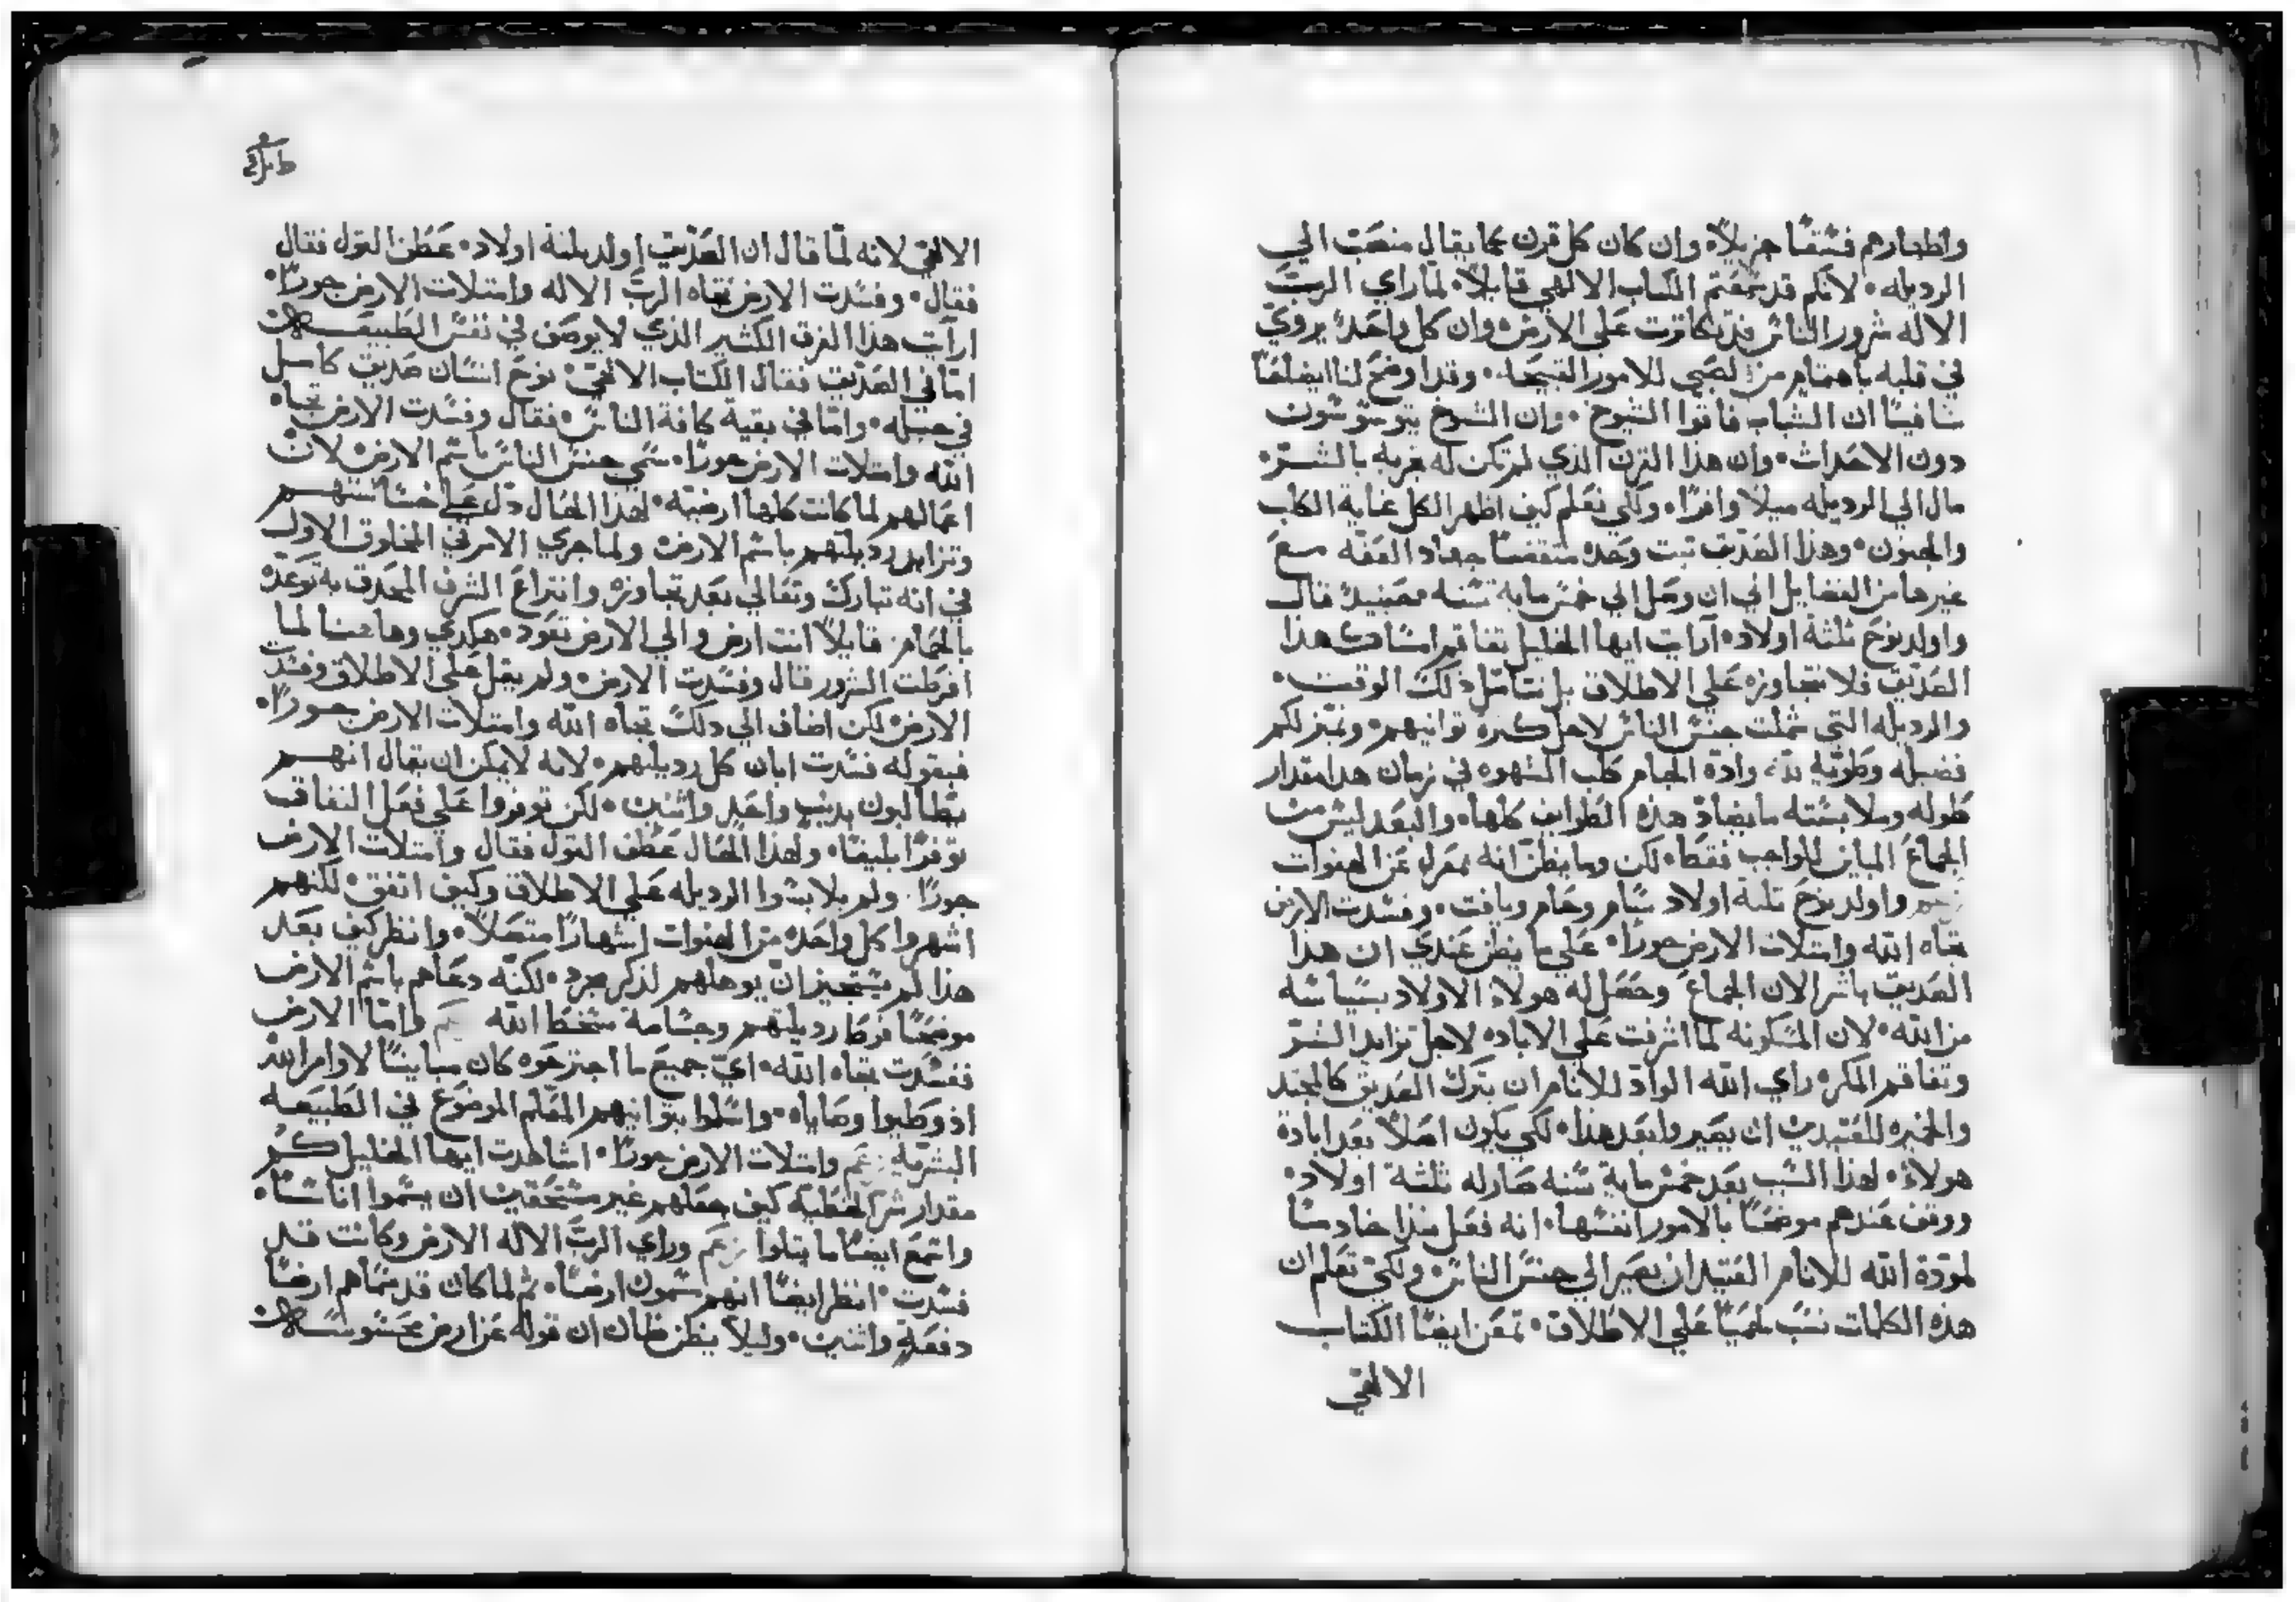 واظهارهم فسقًا جزيلاً وان كان كل قرن كما يقال منصب الي
الرديله٠ لانكم قد سمعتم الكتاب الالهي قايلاً٠ لما راي الرب
الاله شرور الناس قد تكاثرت علي الارض٠ وان كل واحد يروي
في قلبه باهتمام من الصبي للامور القبيحه٠ وقد اوضح لنا ايضاحًا
شافيًا ان الشباب فاقوا الشيوخ٠ وان الشيوخ يتوسوسون
دون الاحداث٠ وان هذا القرن الذي لم تكن له تجربه بالشر٠
مال الي الرديله ميلاً وافرًا٠ ولكي نعلم كيف اظهر الكل غاية الكلب
والجنون٠ وهذا الصديق ثبت وحده جهاد العفه مع
غيرها من الفضايل الي ان وصل الي خمس مايه سنه قال
واولد نوح ثلثة اولاد٠ ارايت ايها الخليل تفاقم امساك هذا
الصديق فلا نتجاوزه علي الاطلاق بل نتامل ذلك الوقت٠
والرديله التي شملت جنس الناس لاجل كثرة توانيهم٠ ونميز لكم
فضيله الجهام كلب الشهوه في زمان هذا مقدار
طوله وملابسته ما يضاد هذه الطوايف كلها٠ والبعد ليس من
الجماع المباين للواجب فقط٠ لكن وما يظن انه بمعزل عن الهفوات
واولد نوح ثلثة اولاد سام وحام ويافت٠ وفسدت الارض
تجاه الله وامتلات الارض جورًا٠ علي ما يظن عندي ان هذا
الصديق باشر الان الجماع وحصل له هولاء الاولاد بسياسه
من الله٠ لان المسكونه لما اشرفت علي الاباده لاجل تزايد الشر
وتفاقم المكر٠ راي الله الواد للانام ان يترك الصديق كالجند
والخميره للعتيدين ان يصيروا بعد هذا٠ لكي يكون اصلاً بعد ابادة
هولاء٠ لهذا السبب بعد خمس ماية سنه صار له ثلثة اولاد٠
ووقف عندهم موضحًا بالامور انفسها٠ انه فعل هذا خادمًا
لمودة الله للانام العتيد ان يصير الي جنس الناس٠ ولكي تعلم ان
هذه الكلمات علي الاطلاق٠ تمعن ايضًا الكتاب
الالهي
الالهي لانه لما قال ان الصديق اولد ثلثة اولاد٠ عطف القول فقال
فقال٠ وفسدت الارض تجاه الرب الاله وامتلات الارض جورًا٠
ارايت هذا الفرق الكثير الذي لا يوصف في نفس الطبيعه
اما في الصديق فقال الكتاب الالهي٠ نوح انسان صديق كامل
في جيله٠ واما في بقية كافة الناس٠ فقال وفسدت الارض تجاه
الله وامتلات الارض جورًا٠ سمي جنس الناس باسم الارض٠ لان
اعمالهم لما كانت كلها ارضيه٠ لهذا الحال دل علي خساستهم
وتزايد رديلتهم باسم الارض٠ ولما جري الامر في المخلوق الاول
في انه تبارك وتعالي بعد تجاوزه وانتزاع الشرف المحدق به توعده
بالحمام٠ قايلاً انت ارض والي الارض تعود٠ هكذي وهاهنا لما
افرطت الشرور قال وفسدت الارض٠ ولم يقل علي الاطلاق وفسدت
الارض٠ لكن اضاف الي ذلك تجاه الله وامتلات الارض جورًا٠
فبقوله فسدت ابان كل رديلتهم٠ لانه لا يمكن ان يقال انهم
يطالبون بذنب واحد واثنين٠ لكن توفروا علي فعل النفاق
توفرًا بليغًا٠ ولهذا الحال عطف القول فقال وامتلات الارض
جورًا٠ ولم يلابسوا الرديله علي الاطلاق وكيف اتفق٠ لكنهم
اشهروا كل واحده من الهفوات اشهارًا متصلاً٠ وانظر كيف بعد
هذا لم يستجيز ان يوهلهم لذكر مجرد٠ لكنه دعاهم باسم الارض
موضحًا فرط رديلتهم وجسامة سخط الله واما الارض
ففسدت تجاه الله٠ اي جميع ما اجترحوه كان مباينًا لاوامر الله
اذ وطيوا وصاياه٠ بتوانيهم المعلم الموضوع في الطبيعه
البشريه وامتلات الارض جورًا٠ اشاهدت ايها الخليل كم
مقدار شر الخطيه كيف جعلهم غير مستحقين ان يسموا اناسًا٠
واسمع ايضًا ما يتلوا وراي الرب الاله الارض وكانت قد
فسدت٠ انظر ايضًا انهم يسمون ارضًا٠ ثم لما كان قد سماهم ارضًا
دفعة واثنين٠ وليلا يظن ظان ان قوله عن ارض محسوسه